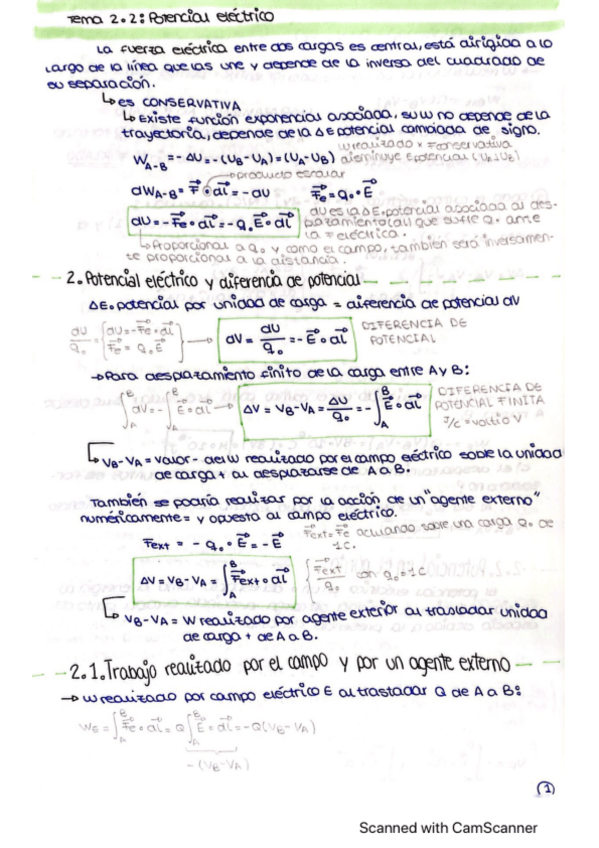 Tema 2.2: Potencial eléctrico
La fuerza eléctrica entre dos cargas es central, está dirigida a lo
largo de la línea que las une y depende de la inversa del cuadrado de
su separación.
↳ es CONSERVATIVA
↳ Existe función exponencial asociada, su W no depende de la
trayectoria, depende de la ΔE potencial cambiada de signo.
W realizado x Fconservativa
W_A-B = -ΔU = -(U_B - U_A) = (U_A - U_B) disminuye Epotencial (U_A > U_B)
→ producto escalar
dW_A-B = F⃗ ∘ dl⃗ = -dU F⃗e = q₀ · E⃗
dU = -F⃗e ∘ dl⃗ = -q₀ E⃗ ∘ dl⃗ dU es la ΔE. potencial asociada al des-
plazamiento(dl) que sufre q₀ ante
la F eléctrica.
↳ Proporcional a q₀ y como el campo, también será inversamen-
te proporcional a la distancia.
2. Potencial eléctrico y diferencia de potencial
ΔE. potencial por unidad de carga = diferencia de potencial dV
dU/q₀ = { dU = -F⃗e ∘ dl⃗ F⃗e = q₀ · E⃗ } → dV = dU/q₀ = -E⃗ ∘ dl⃗ DIFERENCIA DE
POTENCIAL
→ Para desplazamiento finito de la carga entre A y B:
∫_A^B dV = -∫_A^B E⃗ ∘ dl⃗ → ΔV = V_B - V_A = ΔU/q₀ = -∫_A^B E⃗ ∘ dl⃗ DIFERENCIA DE
POTENCIAL FINITA
J/C = voltio V
↳ V_B - V_A = valor - del W realizado por el campo eléctrico sobre la unidad
de carga + al desplazarse de A a B.
También se podría realizar por la acción de un "agente externo"
numéricamente = y opuesta al campo eléctrico.
Fext = - q₀ · E⃗ = - E⃗ F⃗ext = F⃗e actuando sobre una carga q₀ de
1C.
ΔV = V_B - V_A = ∫_A^B F⃗ext ∘ dl⃗ { F⃗ext/q₀ con q₀ = 1C
↳ V_B - V_A = W realizado por agente exterior al trasladar unidad
de carga + de A a B.
2.1. Trabajo realizado por el campo y por un agente externo
→ W realizado por campo eléctrico E al trastadar Q de A a B:
W_E = ∫_A^B F⃗e ∘ dl⃗ = Q ∫_A^B E⃗ ∘ dl⃗ = -Q(V_B - V_A)
-(V_B - V_A)
(1)
Scanned with CamScanner